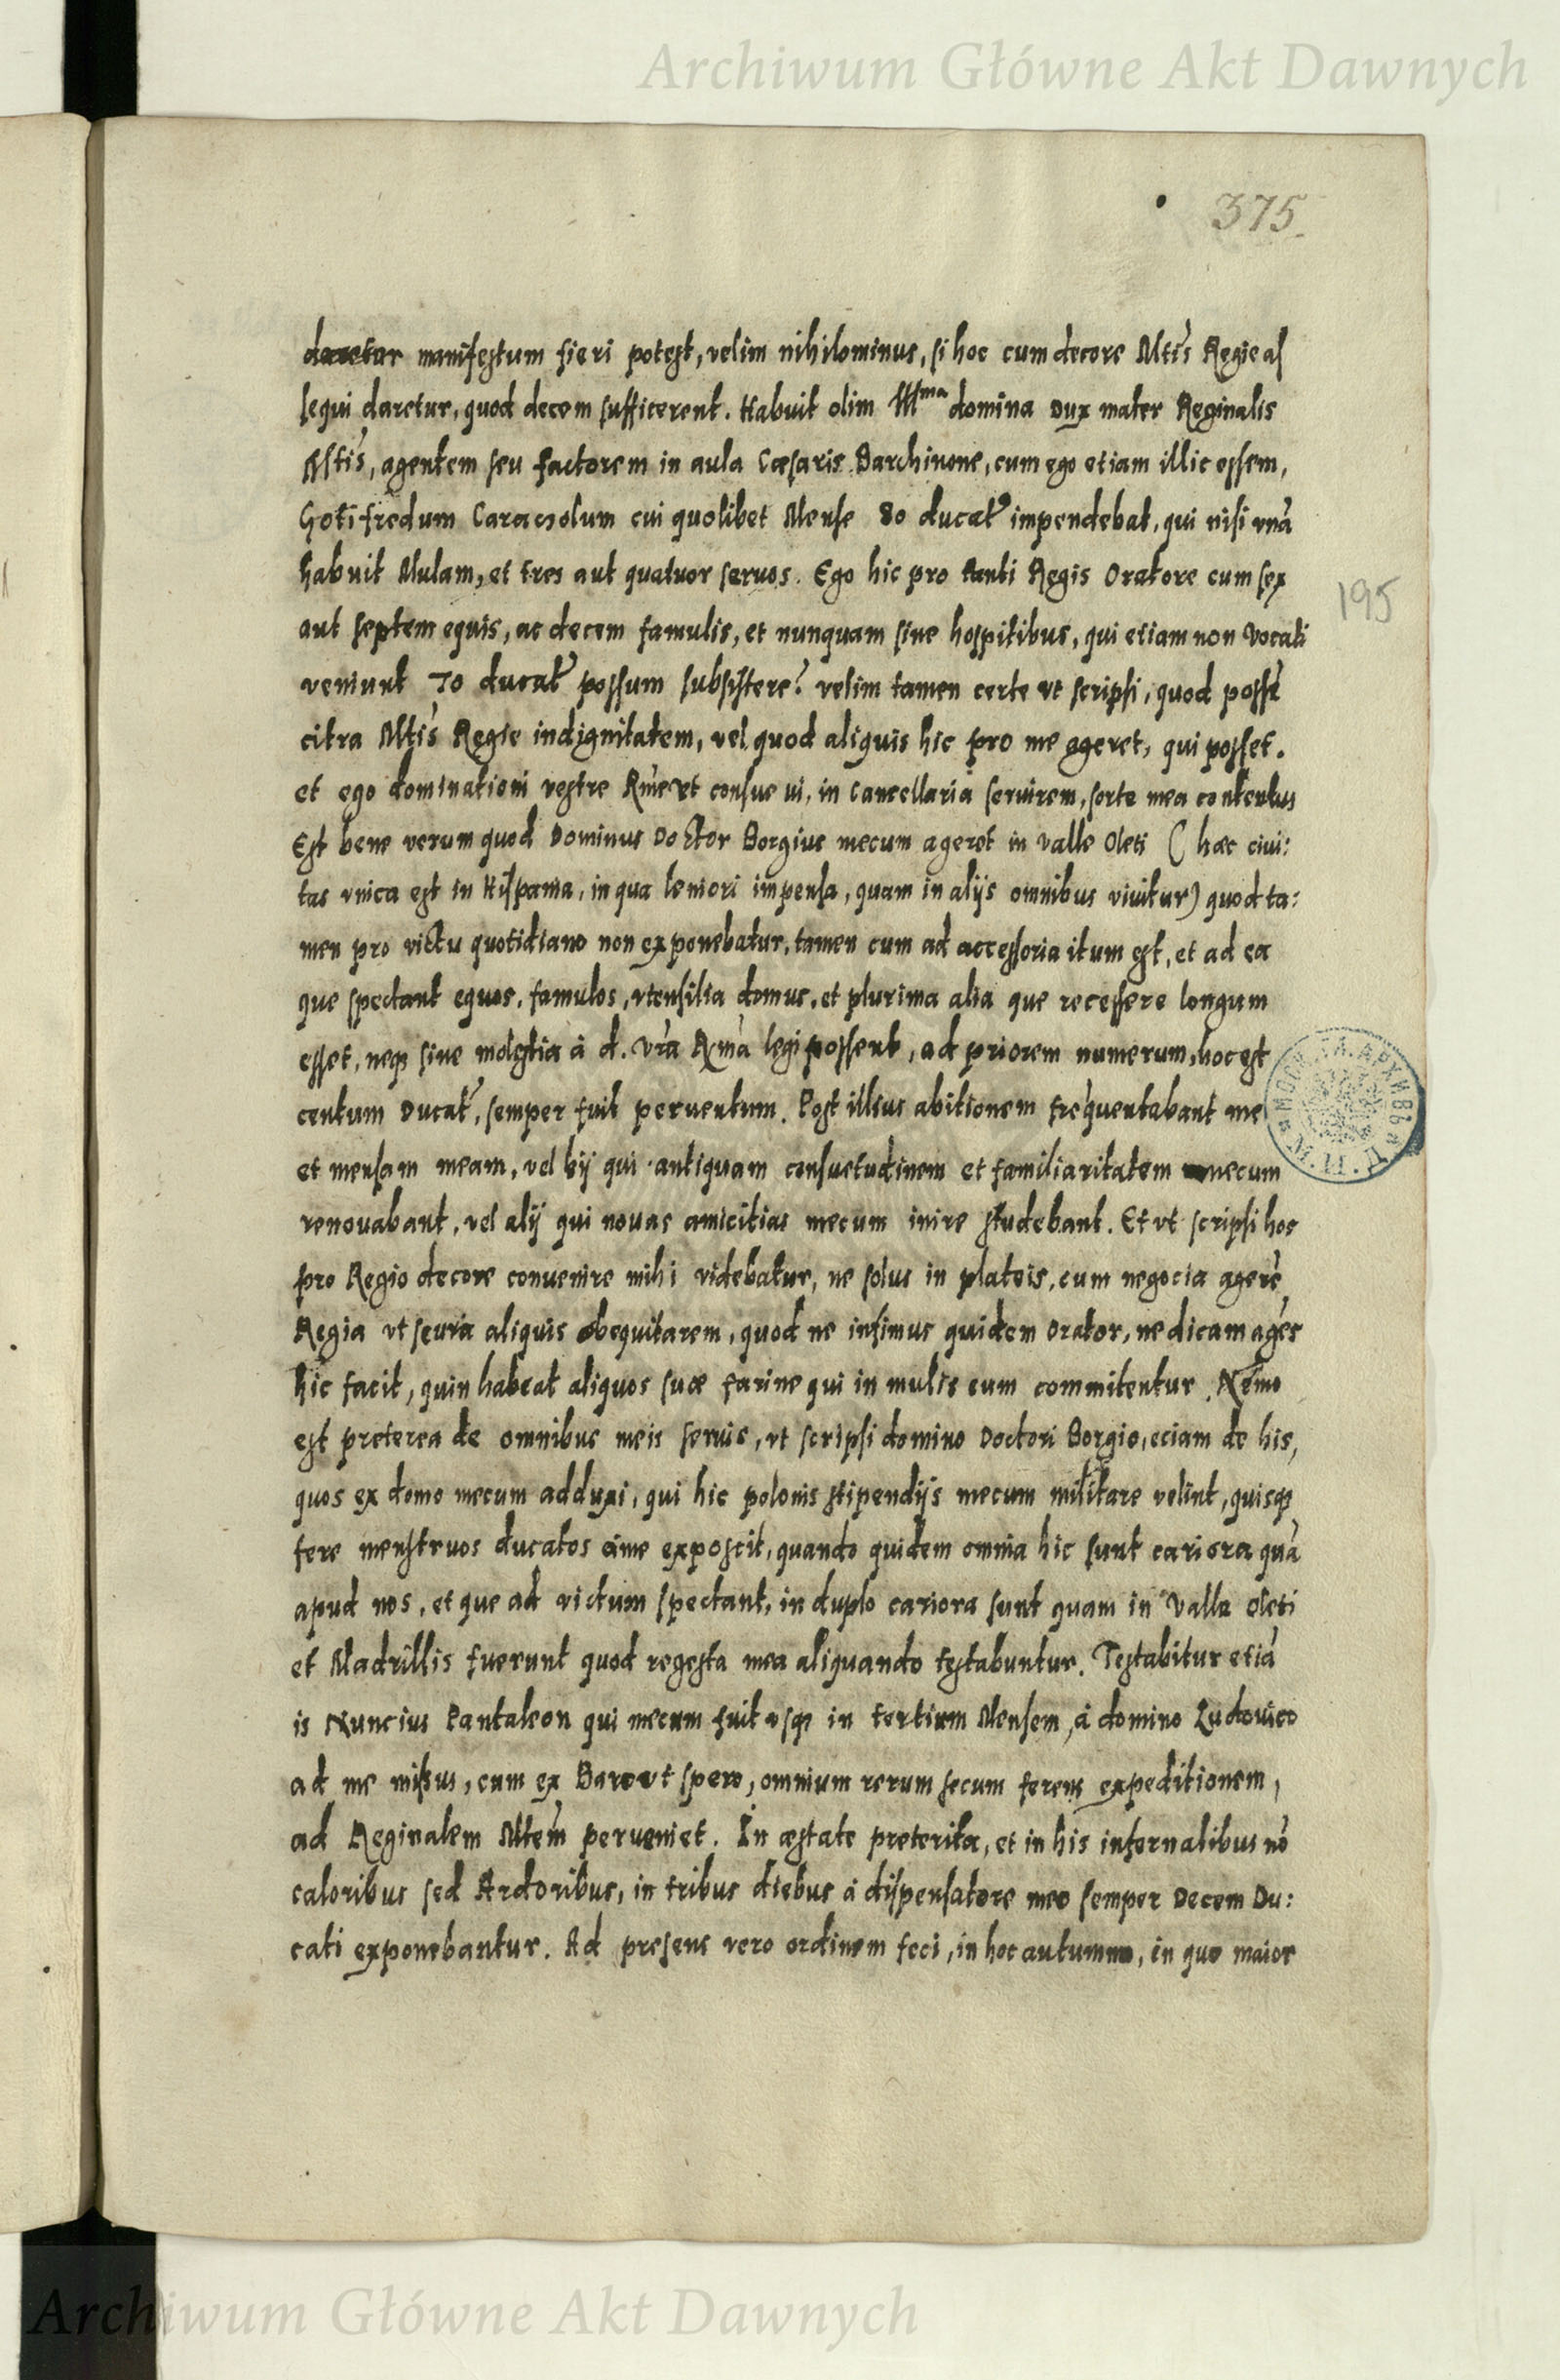 Archiwum Główne Akt Dawnych
375.
daretur manifestum fieri potest, velim nihilominus, si hoc cum decore Mtis Regie as
sequi daretur, quod decem sufficerent. Habuit olim Illma domina Dux mater Reginalis
Mtis, agentem seu factorem in aula Cæsaris Barchinone, cum ego etiam illic essem,
Gotifredum Caracsolum cui quolibet Mense 80 ducat impendebat, qui nisi vnā
habuit Mulam, et tres aut quatuor seruos. Ego hic pro tanti Regis Oratore cum sex
195
aut septem equis, ac decem famulis, et nunquam sine hospitibus, qui etiam non vocati
veniunt 70 ducat possum subsistere? velim tamen certe vt scripsi, quod possē
citra Mtis Regie indignitatem, vel quod aliquis hic pro me ageret, qui posset.
et ego dominationi vestre Rme vt consue ui, in Cancellaria seruirem, sorte mea contentus
Est bene verum quod Dominus Doctor Borgius mecum ageret in valle Oleti ( hæc ciui:
tas vnica est in Hispania, in qua leniori impensa, quam in alijs omnibus viuitur) quod ta:
men pro victu quotidiano non exponebatur, tamen cum ad accessoria itum est, et ad ea
que spectant equos, famulos, vtensilia domus, et plurima alia que recessere longum
esset, neq3 sine molestia à d. vrā Rmā legi possent, ad priorem numerum, hoc est
centum Ducat, semper fuit peruentum. Post illius abitionem frequentabant me
et mensam meam, vel hij qui antiquam consuetudinem et familiaritatem mecum
renouabant, vel alij qui nouas amicitias mecum inire studebant. Et vt scripsi hoc
pro Regio decore conuenire mihi videbatur, ne solus in plateis, cum negocia agerē
Regia vt scurra aliquis obequitarem, quod ne infimus quidem Orator, ne dicam agēs
hic facit, quin habeat aliquos suæ farine qui in mulis eum commitentur. Nemo
est preterea de omnibus meis seruis, vt scripsi domino Doctori Borgio, eciam de his,
quos ex domo mecum adduxi, qui hic polonis stipendijs mecum militare velint, quisq3
fere menstruos ducatos à me exposcit, quando quidem omnia hic sunt cariora quā
apud nos, et que ad victum spectant, in duplo cariora sunt quam in Valle oleti
et Madrillis fuerunt quod regesta mea aliquando testabuntur. Testabitur etiā
is Nuncius Pantaleon qui mecum fuit vsq3 in tertium Mensem, à domino Ludouico
ad me missus, cum ex Baro vt spero, omnium rerum secum ferens expeditionem,
ad Reginalem Mtem perueniet. In æstate preterita, et in his infernalibus nō
caloribus sed Ardoribus, in tribus diebus à dispensatore meo semper Decem Du:
cati exponebantur. Ad presens vero ordinem feci, in hoc autumno, in quo maior
Archiwum Główne Akt Dawnych